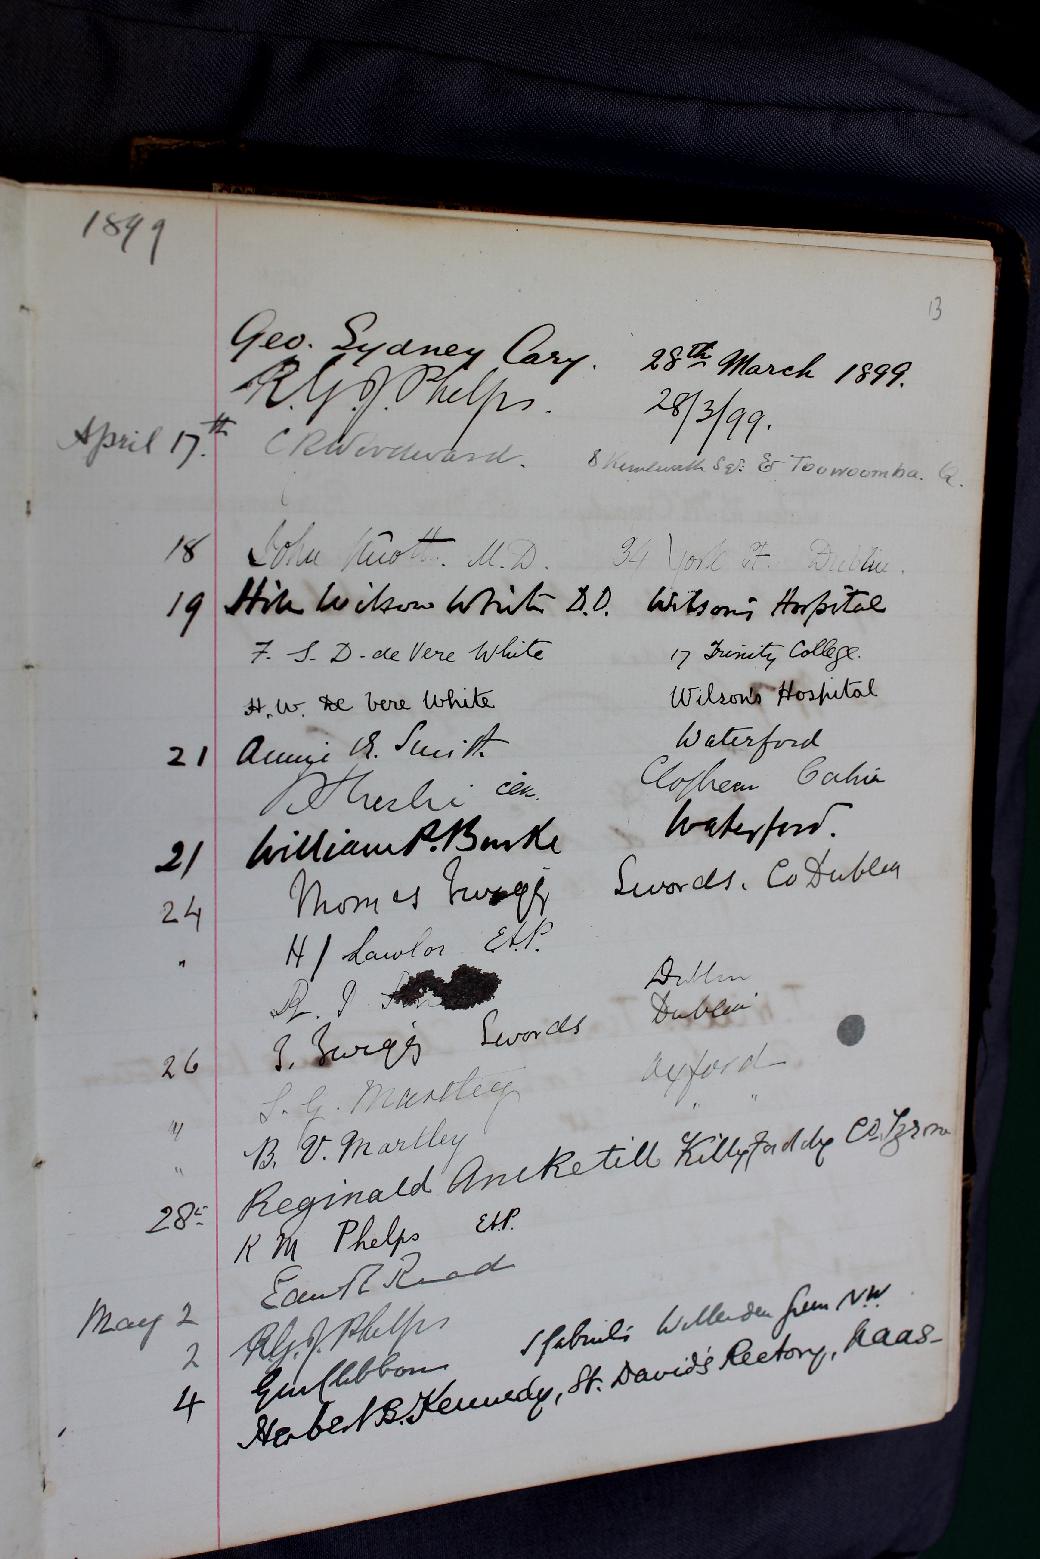 1899
13
Geo. Sydney Cary. 28th March 1899.
R.G.J. Phelps. 28/3/99.
April 17th. C R Woodward. 8 Kenilworth Sqr. & Toowoomba. Q.
18 John Knott. M.D. 34 York St. Dublin.
19 Hill Wilson White D.D. Wilson's Hospital
F. S. D. de Vere White 17 Trinity College.
H. W. de Vere White Wilson's Hospital
21 Annie E. Smith Waterford
Clogheen Cahir
21 William P. Burke Waterford.
24 Thomas Twigg Swords. Co Dublin
" H J Lawlor
R. J Dublin
26 T. Twigg Swords Dublin
" L. G. Martley Oxford
" B. V. Martley " "
28th Reginald Ancketill Killyfaddy Co. Tyrone
R M Phelps
May 2
2 R.G.J. Phelps
4 Willesden Green N.W.
Herbert B. Kennedy, St. David's Rectory, Naas